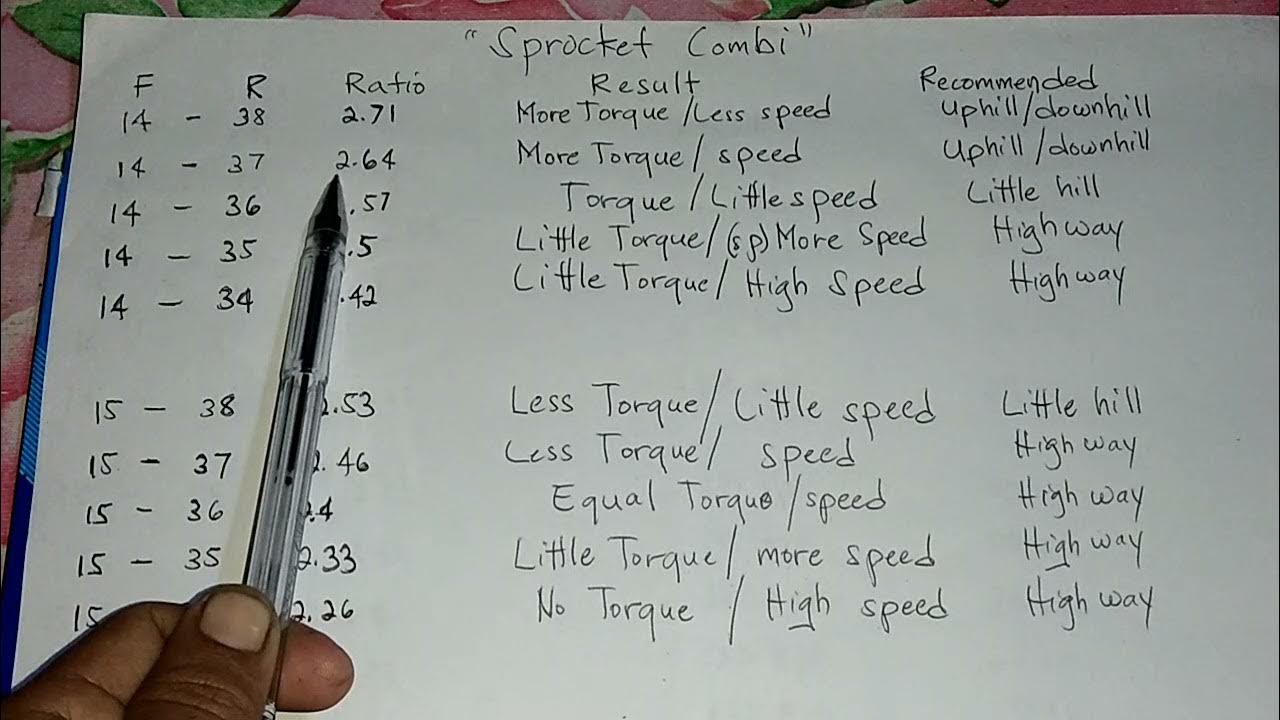 "Sprocket Combi"
F R Ratio Result Recommended
14 - 38 2.71 More Torque/Less speed Uphill/downhill
14 - 37 2.64 More Torque/ speed Uphill/downhill
14 - 36 .57 Torque/Little speed Little hill
14 - 35 .5 Little Torque/(sp) More Speed High way
14 - 34 .42 Little Torque/ High Speed High way
15 - 38 2.53 Less Torque/ Little speed Little hill
15 - 37 2.46 Less Torque/ speed High way
15 - 36 2.4 Equal Torque/speed High way
15 - 35 2.33 Little Torque/ more speed High way
15 2.26 No Torque / High speed High way